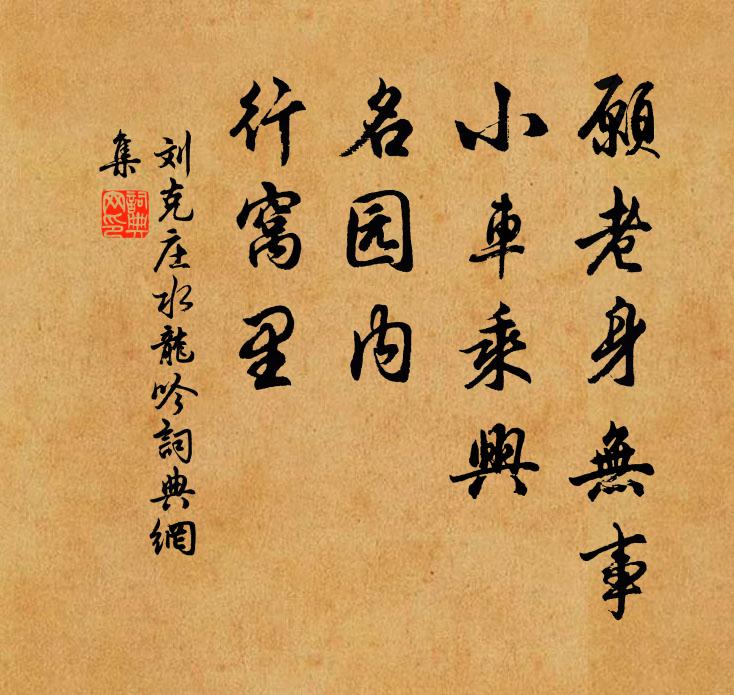 願老身無事
小車乘興
名园内
行窝里
刘克庄水龍吟詞典網
集
詞典网印